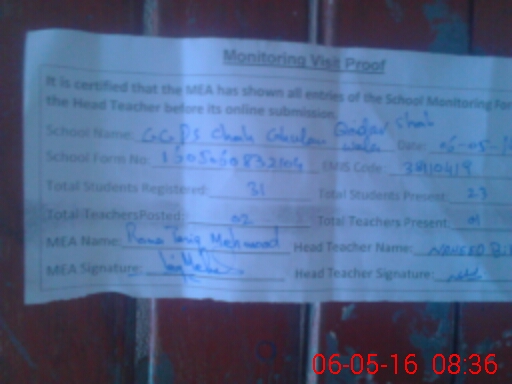 Monitoring Visit Proof
It is certified that the MEA has shown all entries of the School Monitoring For
the Head Teacher before its online submission.
School Name: GGPS Chak Qadar Shah Date: 06-05-
Wala
School Form No: EMIS Code:
Total Students Registered: 31 Total Students Present: 23
Total TeachersPosted: 02 Total Teachers Present: 01
MEA Name: Rana Tariq Mehmood Head Teacher Name:
MEA Signature: Head Teacher Signature:
06-05-16 08:36